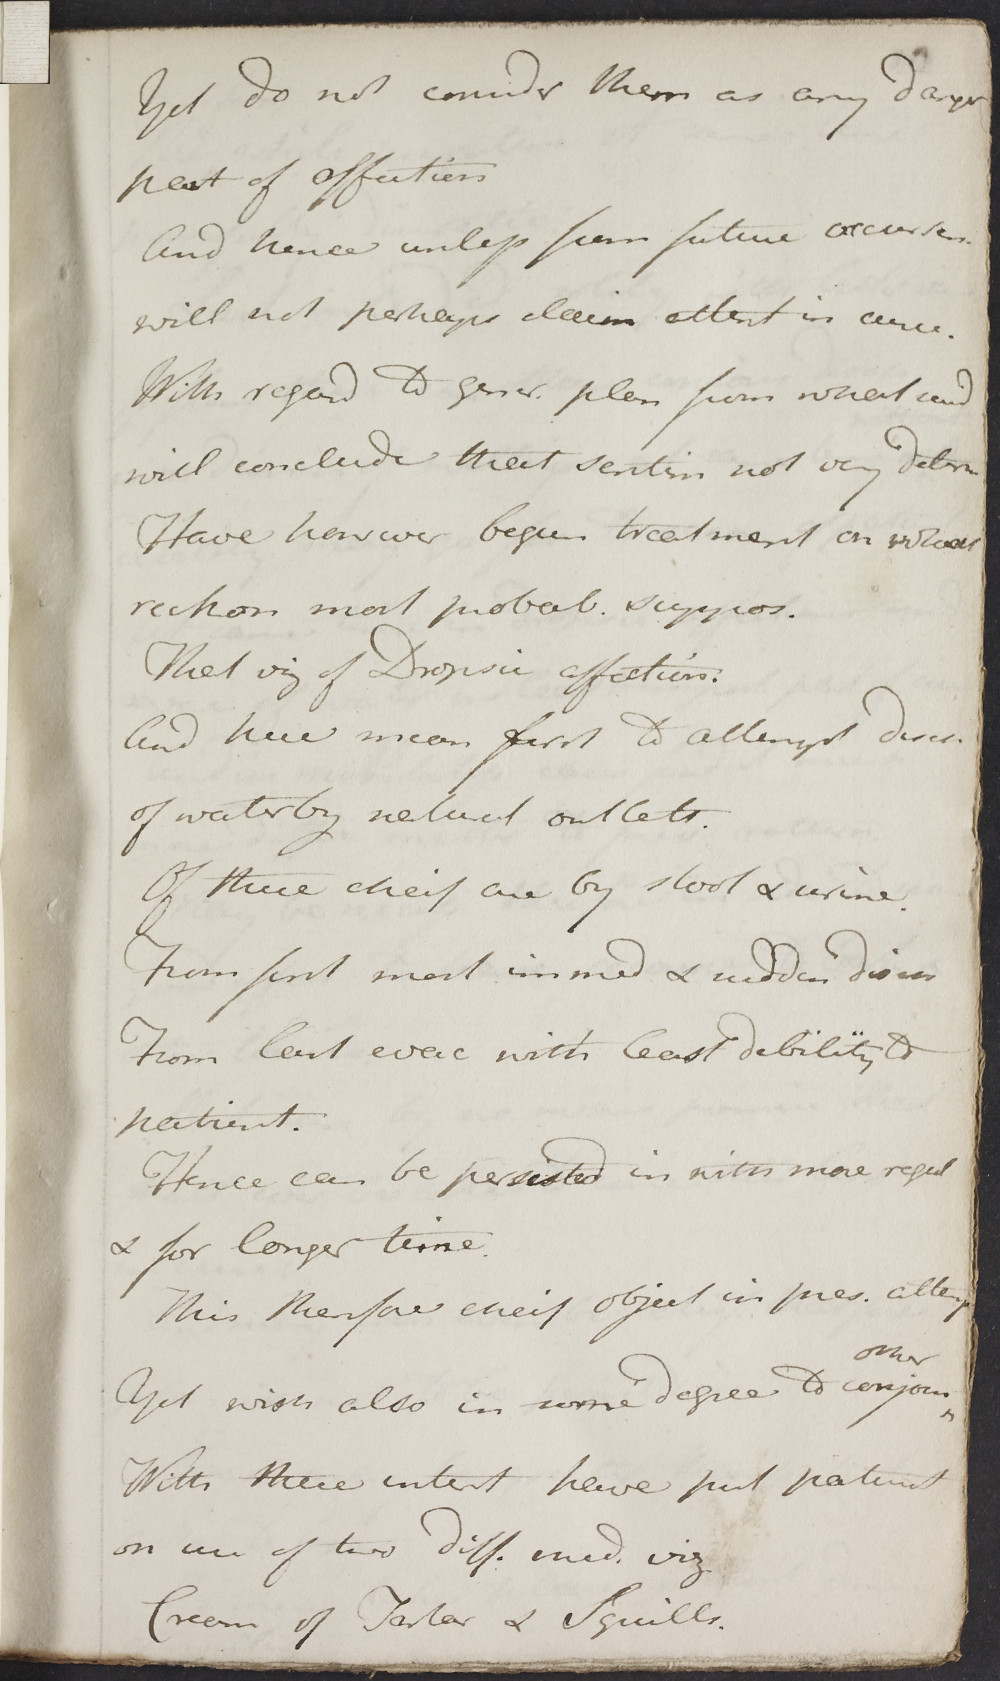 Yet do not consider them as any danger
part of affection
And hence unless from future occurren.
will not perhaps claim attent in cure.
With regard to gener. plan from what said
will conclude that sentim not very determ
Have however begun treatment on what
reckon most probab. suppos.
That viz of Dropsic affection.
And here mean first to attempt disch.
of water by natural outlets.
Of these cheif are by stool & urine.
From first most immed & sudden disch
From last evac with least debility to
patient.
Hence can be persisted in with more regul
& for longer time.
This therefore cheif object in pres. attemp
Yet wish also in some degree to conjoin other
With these intent have put patient
on use of two diff. med. viz
Cream of Tartar & Squills.